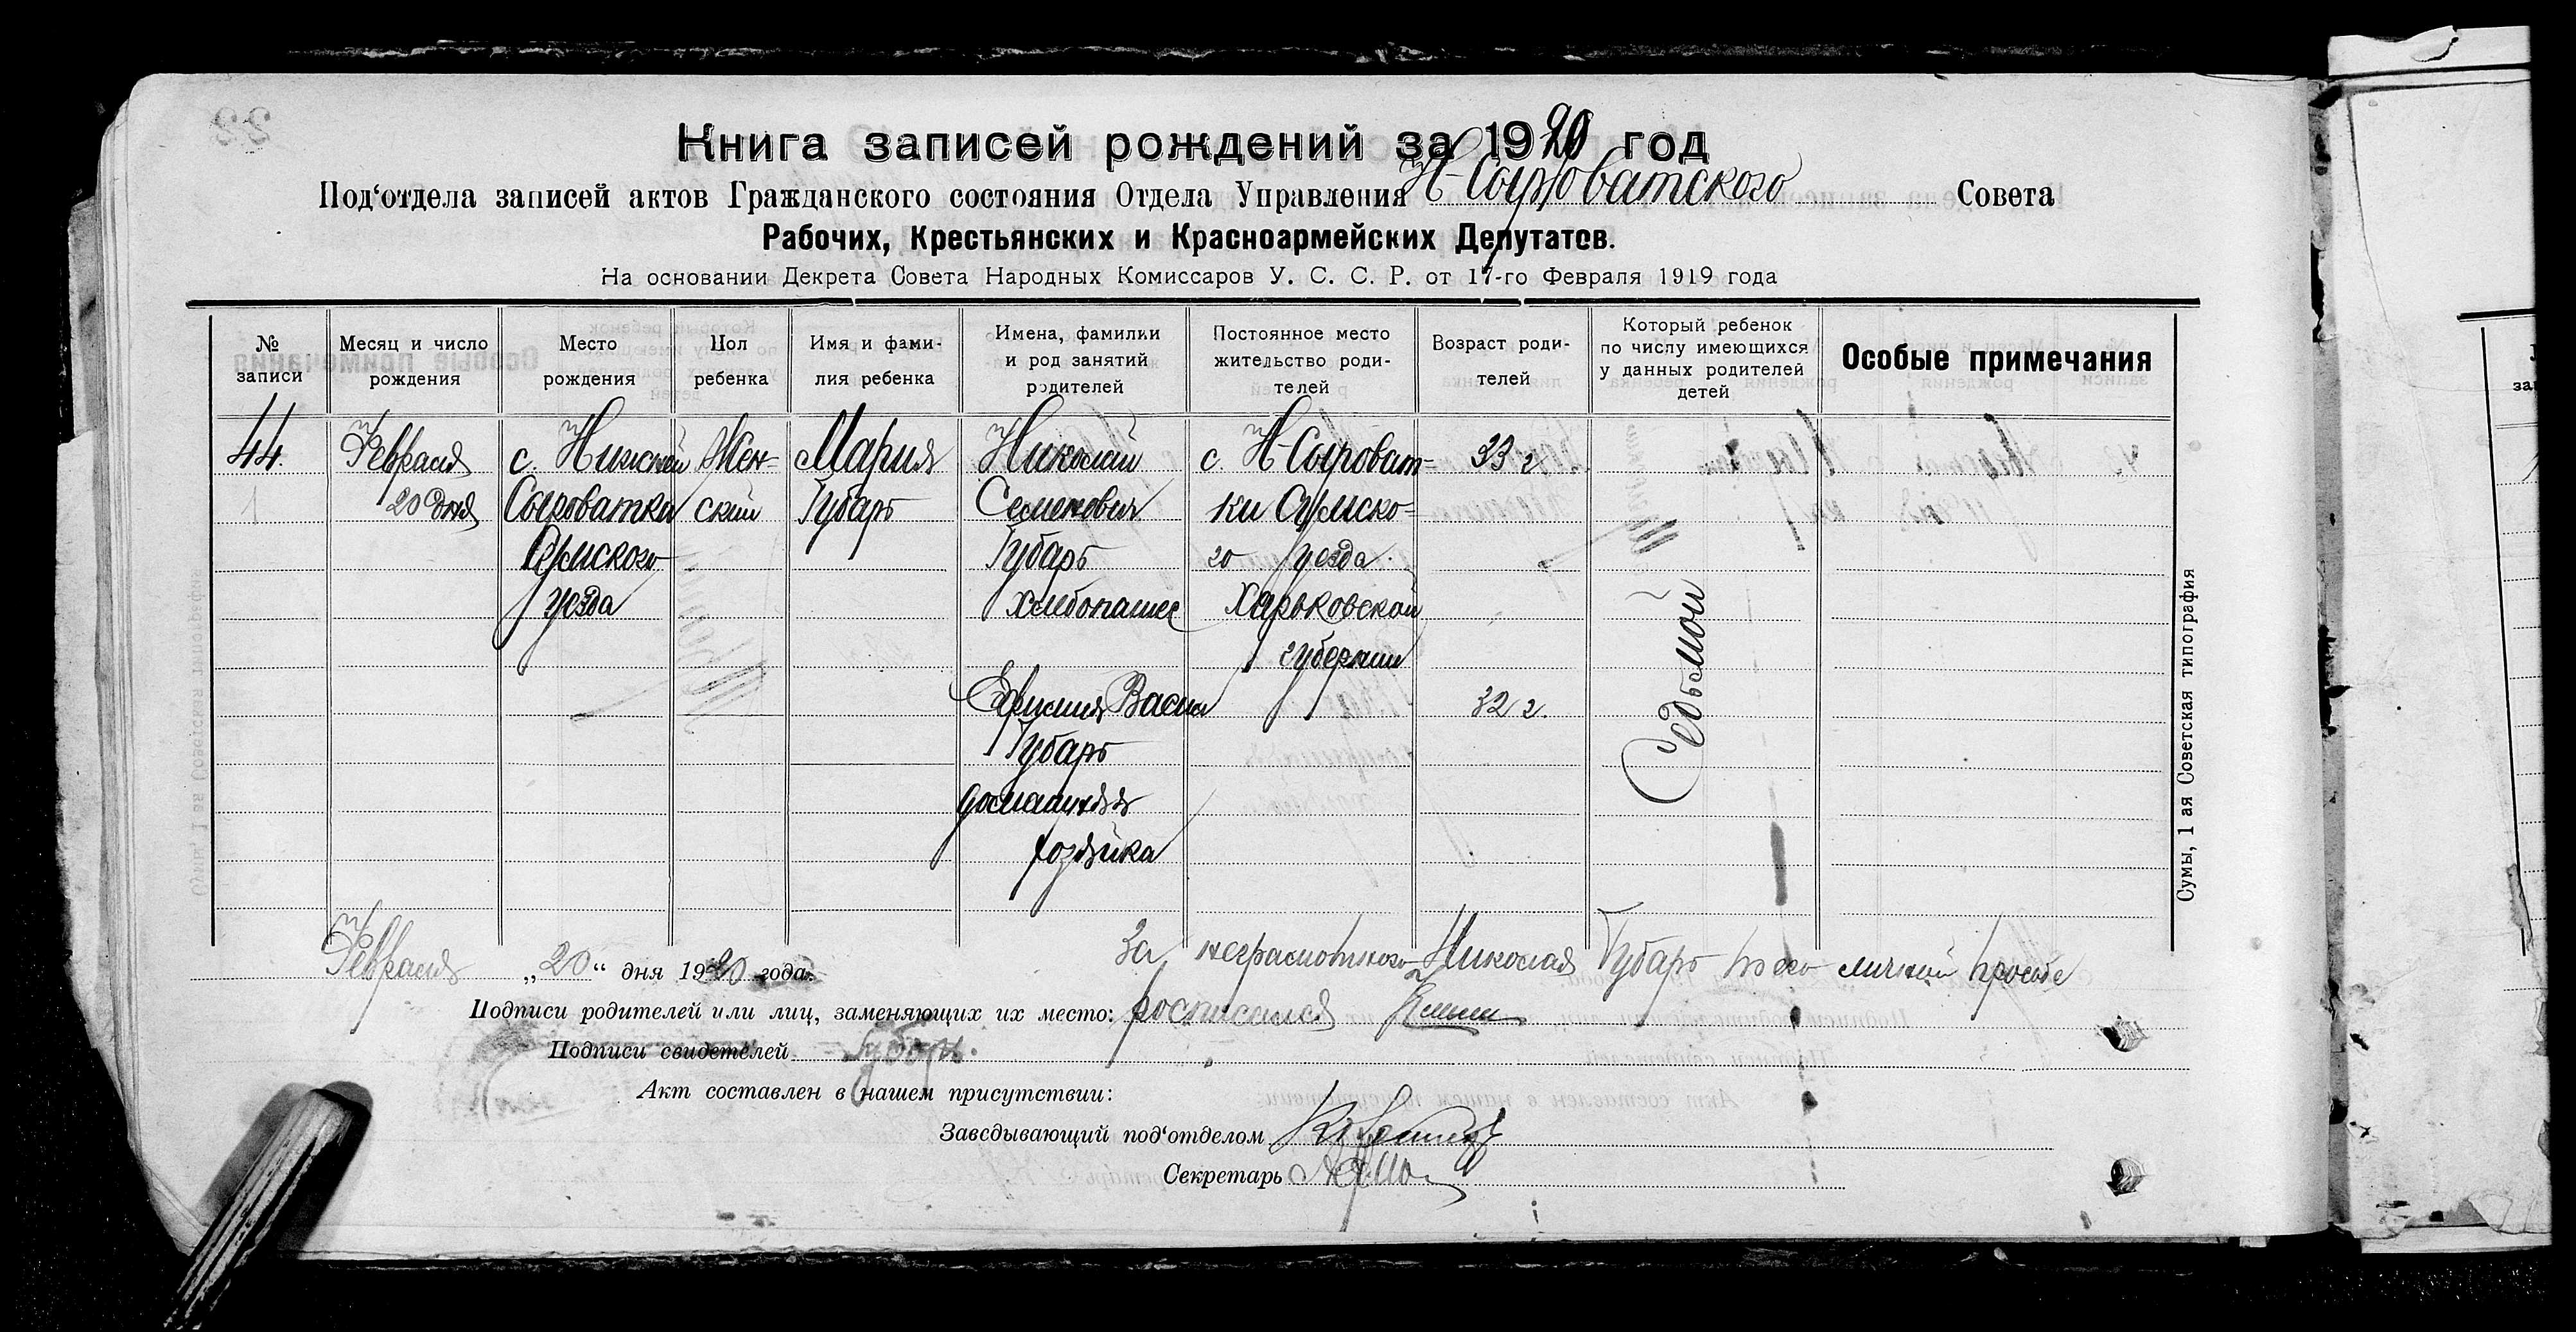 Книга записей рождений за 1920 год
Под'отдела записей актов Гражданского состояния Отдела Управления Н-Сыроватского Совета
Рабочих, Крестьянских и Красноармейских Депутатов.
На основании Декрета Совета Народных Комиссаров У. С. С. Р. от 17-го Февраля 1919 года
№ записи
Месяц и число рождения
Место рождения
Пол ребенка
Имя и фамилия ребенка
Имена, фамилии и род занятий родителей
Постоянное место жительство родителей
Возраст родителей
Который ребенок по числу имеющихся у данных родителей детей
Особые примечания
44.
Февраля
20 дня
с. Нижней
Сыроватка
Сумского
уезда
Жен-
ский
Мария
Губарь
Николай
Семенович
Губарь
хлебопашец
Ефимия Васил
Губарь
домашняя
хозяйка
с. Н-Сыроват-
ки Сумско-
го уезда.
Харьковской
губернии
33 г
32 г.
Седьмой
Февраля „20“ дня 1920 года.
За неграмотного Николая Губарь по его личной просьбе
Подписи родителей или лиц, заменяющих их место: росписался
Подписи свидетелей Губарь.
Акт составлен в нашем присутствии:
Заведывающий под'отделом
Секретарь
Сумы, 1 ая Советская типография